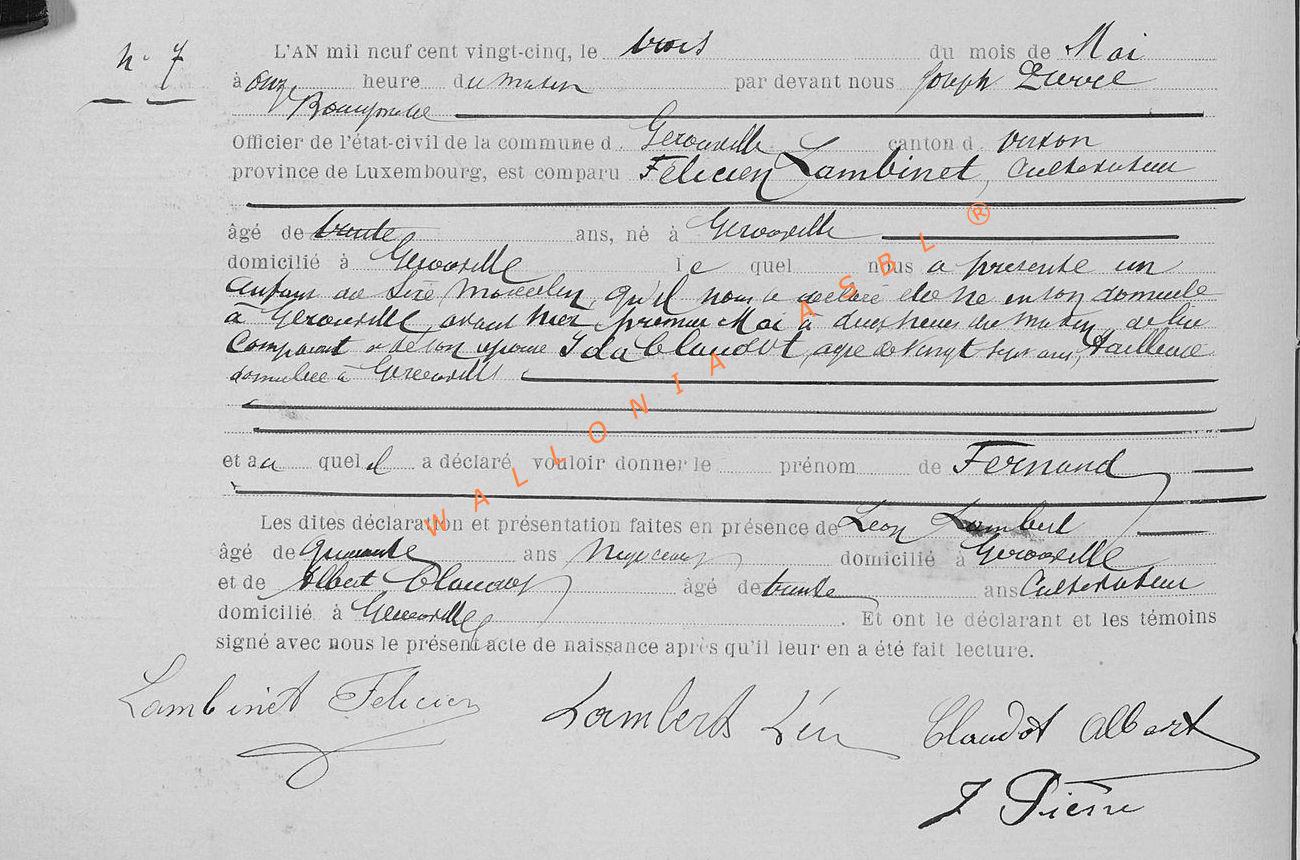 N° 7
L'AN mil neuf cent vingt-cinq, le trois du mois de Mai
à onze heure du matin par devant nous Joseph Pierre
Bourgmestre
Officier de l'état-civil de la commune d Gerouville canton d Virton
province de Luxembourg, est comparu Félicien Lambinet, Cultivateur
âgé de trente ans, né à Gerouville
domicilié à Gerouville le quel nous a présenté un
enfant du sexe masculin, qu'il nous a déclaré être né en son domicile
à Gerouville, avant hier premier Mai à deux heures du matin, de lui
Comparant et de son épouse Ida Claudot, agée de vingt sept ans, tailleuse
domiciliée à Gerouville
et au quel il a déclaré vouloir donner le prénom de Fernand
Les dites déclaration et présentation faites en présence de Léon Lambert
âgé de quarante ans négociant domicilié à Gerouville
et de Albert Claudot âgé de trente ans Cultivateur
domicilié à Gerouville . Et ont le déclarant et les témoins
signé avec nous le présent acte de naissance après qu'il leur en a été fait lecture.
Lambinet Félicien Lambert Léon Claudot Albert
J Pierre
WALLONIA ASBL ®